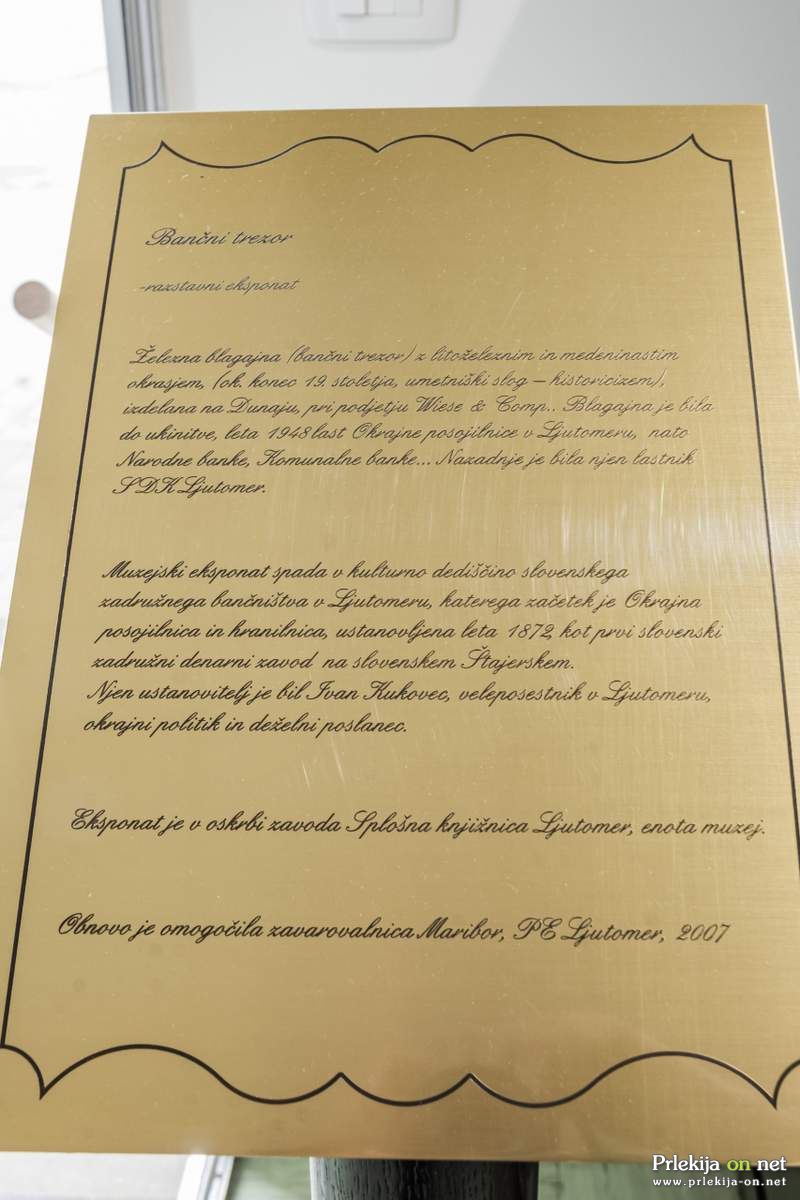 Bančni trezor
-razstavni eksponat
Železna blagajna (bančni trezor) z litoželeznim in medeninastim
okrasjem, (ok. konec 19. stoletja, umetniški slog – historicizem),
izdelana na Dunaju, pri podjetju Wiese & Comp.. Blagajna je bila
do ukinitve, leta 1948 last Okrajne posojilnice v Ljutomeru, nato
Narodne banke, Komunalne banke... Nazadnje je bila njen lastnik
SDK Ljutomer.
Muzejski eksponat spada v kulturno dediščino slovenskega
zadružnega bančništva v Ljutomeru, katerega začetek je Okrajna
posojilnica in hranilnica, ustanovljena leta 1872, kot prvi slovenski
zadružni denarni zavod na slovenskem Štajerskem.
Njen ustanovitelj je bil Ivan Kukovec, veleposestnik v Ljutomeru,
okrajni politik in deželni poslanec.
Eksponat je v oskrbi zavoda Splošna knjižnica Ljutomer, enota muzej.
Obnovo je omogočila zavarovalnica Maribor, PE Ljutomer, 2007
Prlekija on net
www.prlekija-on.net